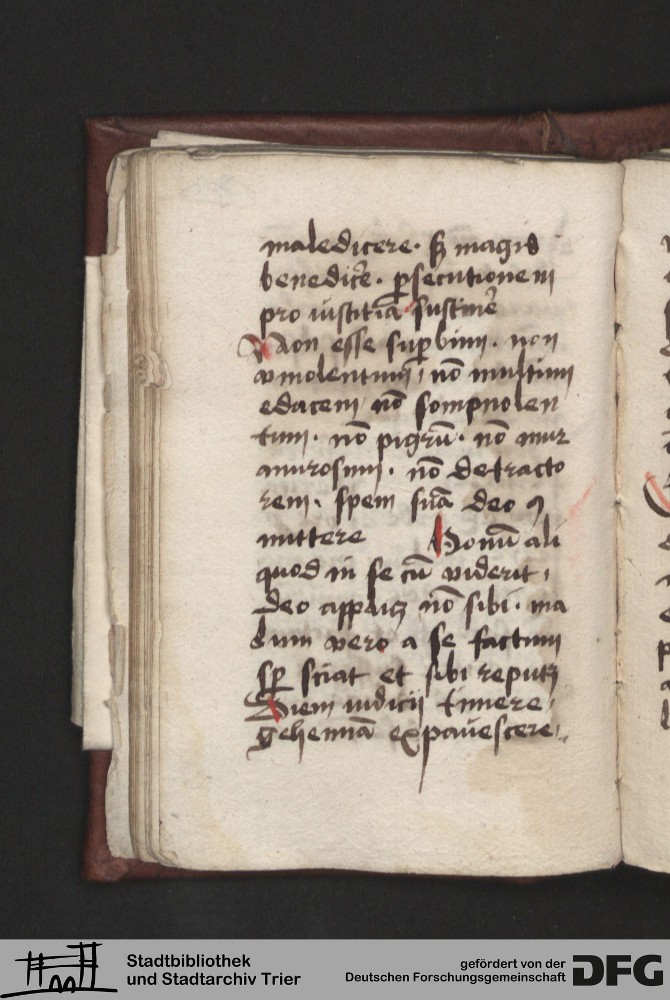 maledicere. sꝫ magis
benedicẽ. ꝑsecutionem
pro iusticia sustinẽ
Non esse suꝑbum. non
vinolentum, nõ multum
edacem nõ sompnolen
tum. nõ pigrũ. nõ mur
murosum. nõ detracto
rem. spem suã deo ꝯ
mittere Bonũ ali
quod in se cũ viderit,
deo applicꝫ nõ sibi. ma
lum vero a se factum
sꝑ sciat et sibi reputꝫ
Diem iudicij timere.
gehennã expauescere.
Stadtbibliothek
und Stadtarchiv Trier
gefördert von der
Deutschen Forschungsgemeinschaft
DFG